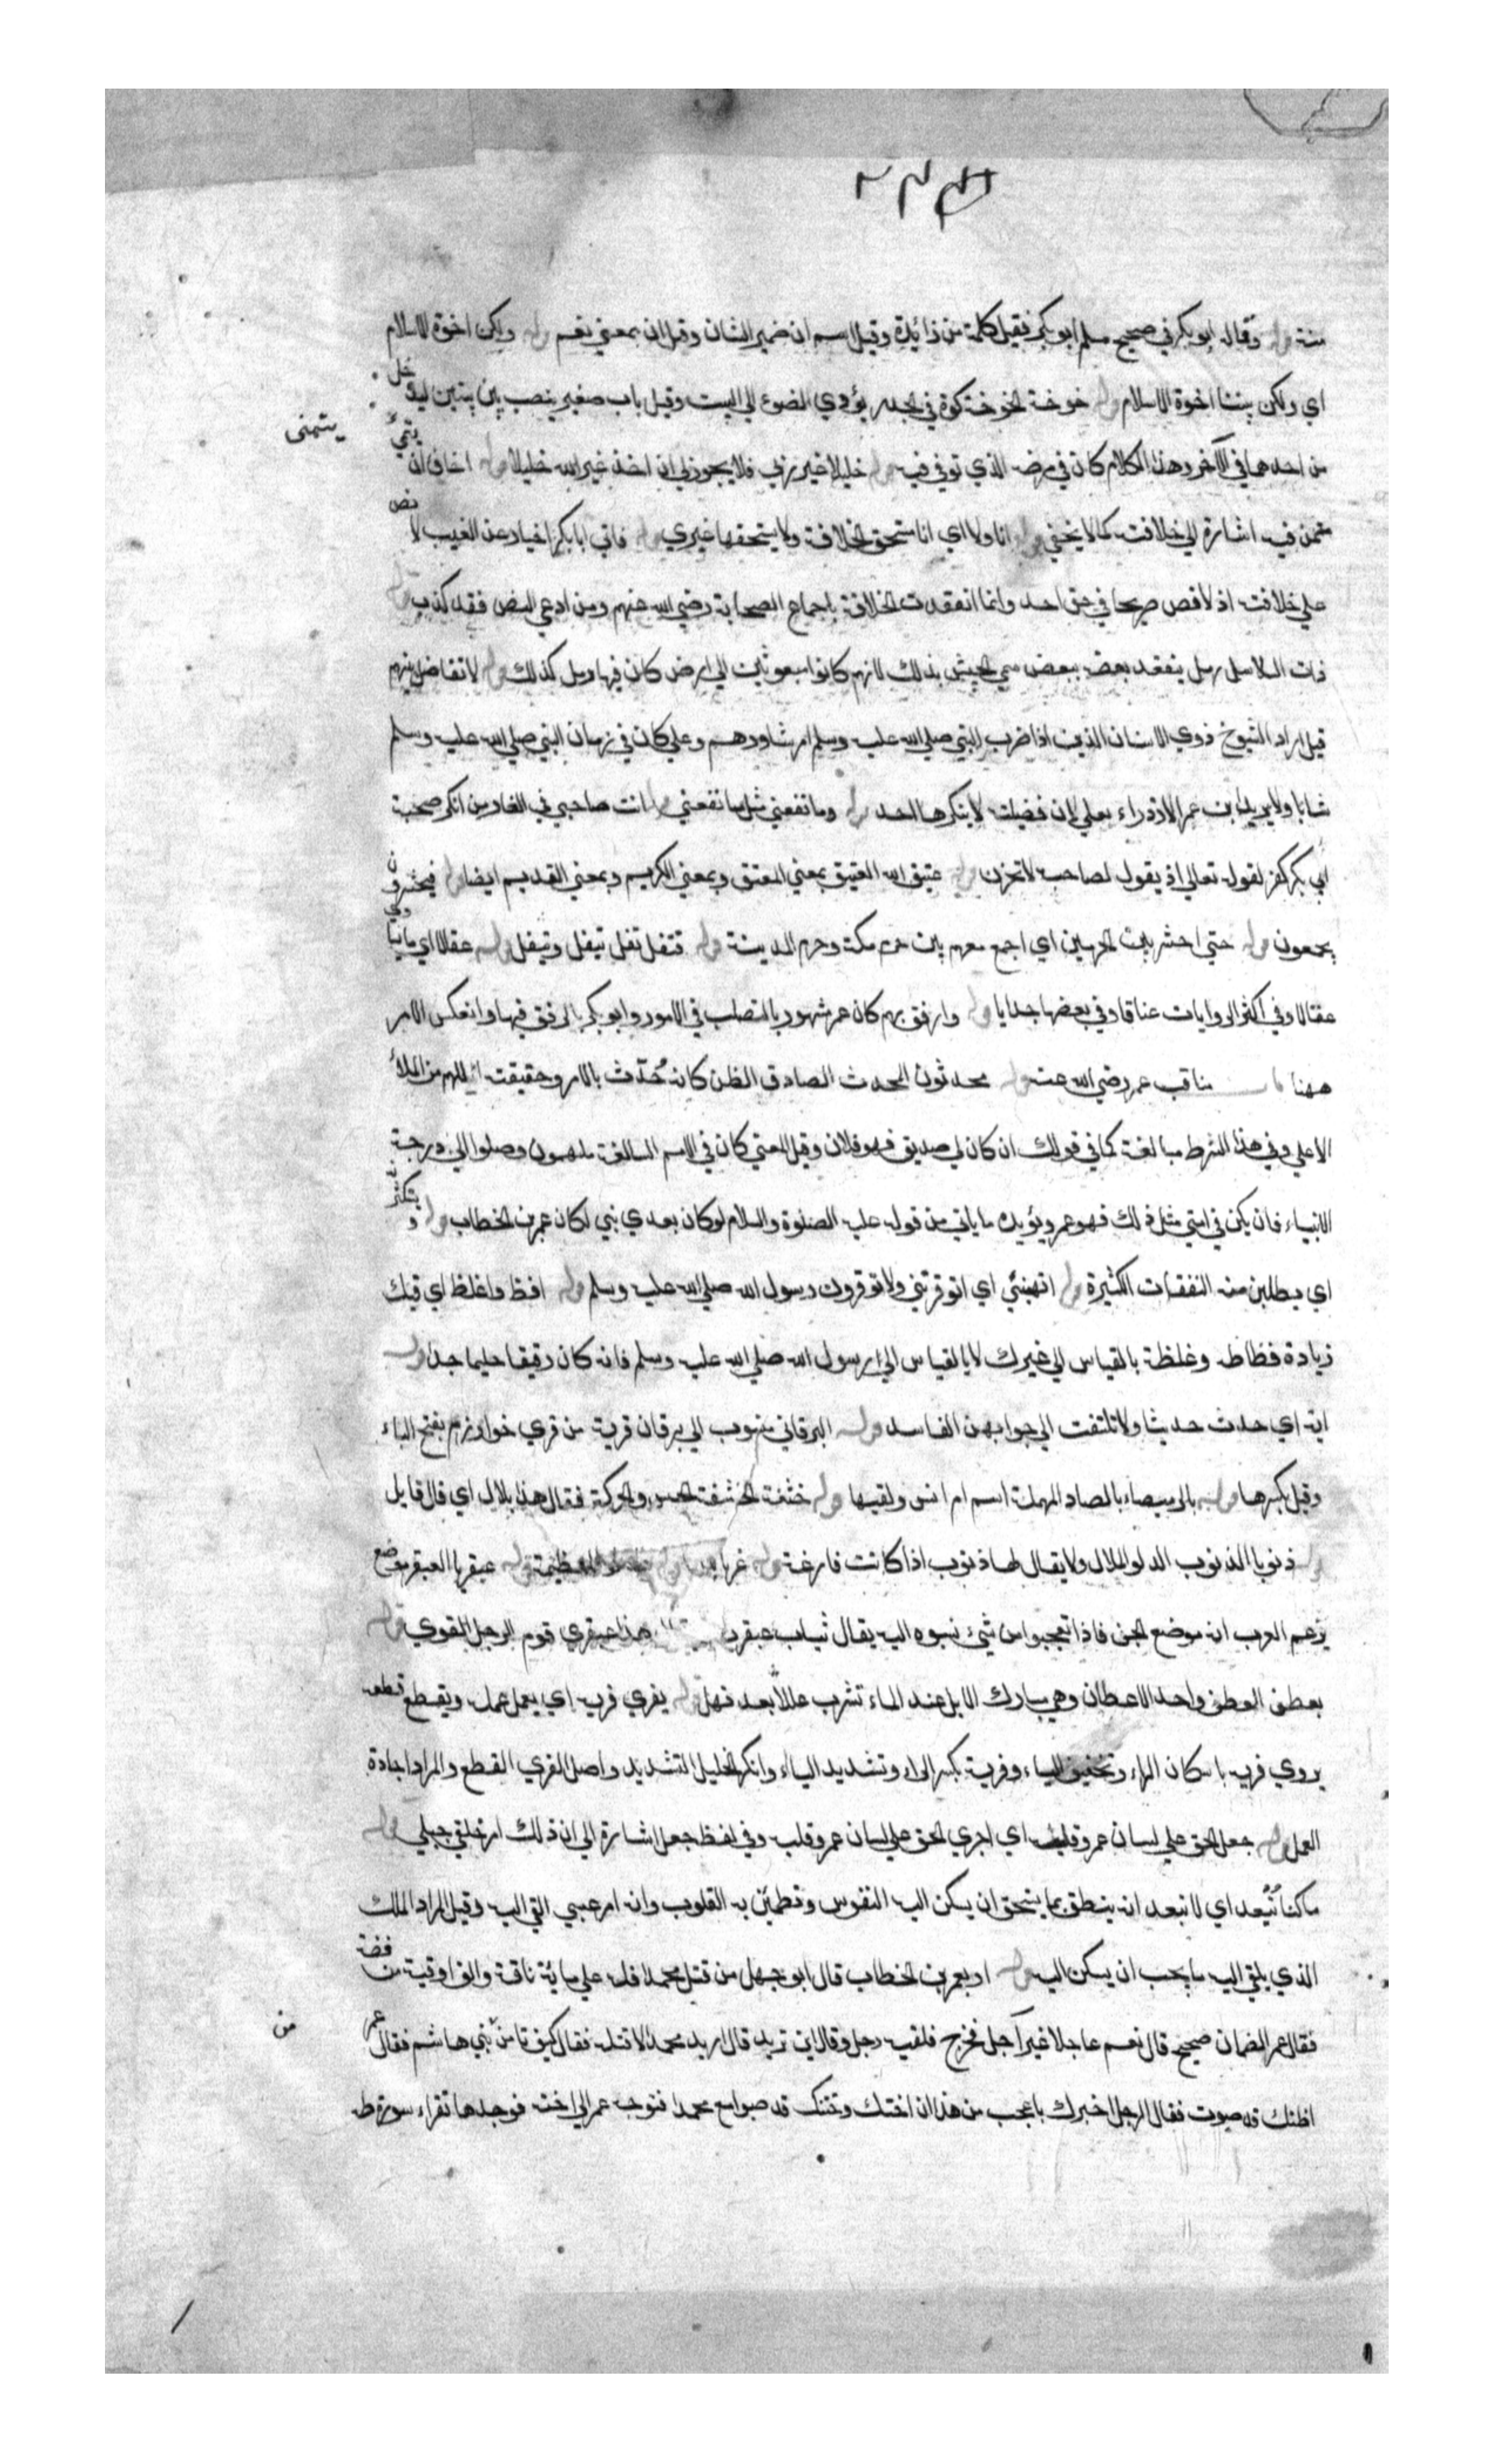 منه قوله وقال ابو بكر في صحيح مسلم ابو بكر فقيل كلمة من زائدة وقيل اسم ان ضمير الشان وقيل ان بمعني نعم قوله ولكن اخوة الاسلام
اي ولكن بيننا اخوة الاسلام قوله خوخة الخوخة كوة في الجدار يؤدي الضوء الي البيت وقيل باب صغير ينصب بين بيتين ليدخل
من احدهما في الآخر وهذا الكلام كان في مرضه الذي توفي فيه قوله خليلا غير ربي فلا يجوز لي ان اخذ غير الله خليلا قوله اخاف ان يتمني
يتمنى
متمن فيه اشارة الي خلافته كما لا يخفي قوله انا ولا اي انا مستحق الخلافة ولا يستحقها غيري قوله فاتي ابا بكر اخبار عن الغيب لا نص
علي خلافته اذ لا نص صريحا في حق احد وانما انعقدت الخلافة باجماع الصحابة رضي الله عنهم ومن ادعي النص فقد كذب قوله
ذات السلاسل رمل ينعقد بعضه ببعض سمي الجيش بذلك لانهم كانوا مبعوثين الي ارض كان فيها رمل كذلك قوله لا تفاضل بينهم
قيل اراد الشيوخ ذوي الاسنان الذين اذا ضرب النبي صلي الله عليه وسلم امر شاورهم وعلي كان في زمان النبي صلي الله عليه وسلم
شابا ولا يريد ابن عمر الازدراء بعلي لان فضيلته لا ينكرها احد قوله وما نفعني مثل ما نفعني قوله انت صاحبي في الغار من انكر صحبة
ابي بكر كفر لقوله تعالي اذ يقول لصاحبه لا تحزن قوله عتيق الله العتيق بمعني المعتق وبمعني الكريم وبمعني القديم ايضا قوله فيحشرون
يجمعون قوله حتي احشر بين الحرمين اي اجمع معهم بين حرم مكة وحرم المدينة قوله فتفل تفل يتفل ويتفل قوله عقالا اي ما يساوي
عقالا وفي اكثر الروايات عناقا وفي بعضها جدايا قوله وارفق بهم كان عمر مشهورا بالتصلب في الامور وابو بكر بالرفق فيها وانعكس الامر
ههنا باب مناقب عمر رضي الله عنه قوله محدثون المحدث الصادق الظن كانه حُدّث بالامر وحقيقته الملهم من الملأ
الاعلي وفي هذا الشرط مبالغة كما في قولك ان كان لي صديق فهو فلان وقيل المعني كان في الامم السالفة ملهمون وصلوا الي درجة
الانبياء فان يكن في امتي مثل ذلك فهو عمر ويؤيده ما ياتي من قوله عليه الصلوة والسلام لو كان بعدي نبي لكان عمر بن الخطاب قوله ويستكثرنه
اي يطلبن منه النفقات الكثيرة قوله اتهبنني اي اتوقرنني ولا توقرون رسول الله صلي الله عليه وسلم قوله افظ واغلظ اي فيك
زيادة فظاظة وغلظة بالقياس الي غيرك لا بالقياس الي رسول الله صلي الله عليه وسلم فانه كان رفيقا حليما جدا قوله
ايه اي حدث حديثا ولا تلتفت الي جوابهن الفاسد قوله البرقاني منسوب الي برقان قرية من قري خوارزم بفتح الباء
وقيل بكسرها قوله بالرميصاء بالصاد المهملة اسم ام انس ولقبها قوله خشفة الخشفة الحس والحركة فقال هذا بلال اي قال قايل
قوله ذنوبا الذنوب الدلو الملان ولا يقال لها ذنوب اذا كانت فارغة قوله غربا العظيمة قوله عبقريا العبقر موضع
يزعم العرب انه موضع الجن فاذا تعجبوا من شيئ نسبوه اليه يقال ثياب عبقرية هذا عبقري قوم الرجل القوي قوله
بعطن العطن واحد الاعطان وهي مبارك الابل عند الماء تشرب عللا بعد نهل قوله يفري فريه اي يعمل عمله ويقطع قطعه
يروي فريه باسكان الراء وتخفيف الياء وفريه بكسر الراء وتشديد الياء وانكر الخليل التشديد واصل الفري القطع والمراد اجادة
العمل قوله جعل الحق علي لسان عمر وقلبه اي اجري الحق علي لسان عمر وقلبه وفي لفظ جعل اشارة الي ان ذلك امر خلقي جبلي قوله
ما كنا نُبعد اي لا نبعد انه ينطق بما يستحق ان يسكن اليه النفوس وتطمئن به القلوب وانه امر غيبي القي اليه وقيل المراد الملك
الذي يلقي اليه ما يجب ان يسكن اليه قوله او بعمر بن الخطاب قال ابو جهل من قتل محمدا فله علي ماية ناقة والف اوقية من فضة
فقال عمر الضمان صحيح قال نعم عاجلا غير آجل فخرج فلقيه رجل وقال اين تريد قال اريد محمدا لاقتله فقال كيف تامن بني هاشم فقال عمر
من
اظنك قد صبوت فقال الرجل اخبرك باعجب من هذا ان اختك وختنك قد صبوا مع محمد فتوجه عمر الي اخته فوجدها تقراء سورة طه